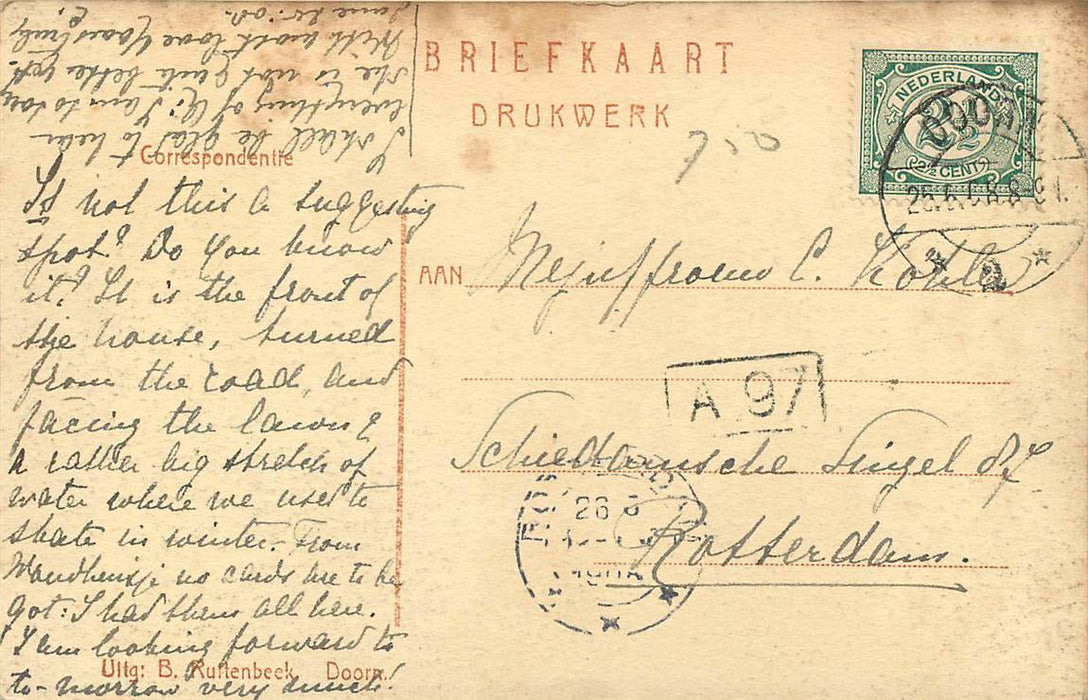 BRIEFKAART
DRUKWERK
7,50
NEDERLAND
2½
2½ CENT
DOORN
Correspondentie
Is not this a suggesting
spot? Do you know
it? It is the front of
the house, turned
from the road, and
facing the lawn &
a rather big stretch of
water where we used to
skate in winter. From
no cards are to be
got: I had them all here.
I am looking forward to
to-morrow very much!
I shall be glad to hear
everything of U; I am so sorry
she is not quite better yet.
With most love yours truly
June 25. '08.
AAN
Mejuffrouw C. Kohler
A 97
Schiedamsche Singel 87
Rotterdam.
Uitg: B. Ruitenbeek, Doorn.